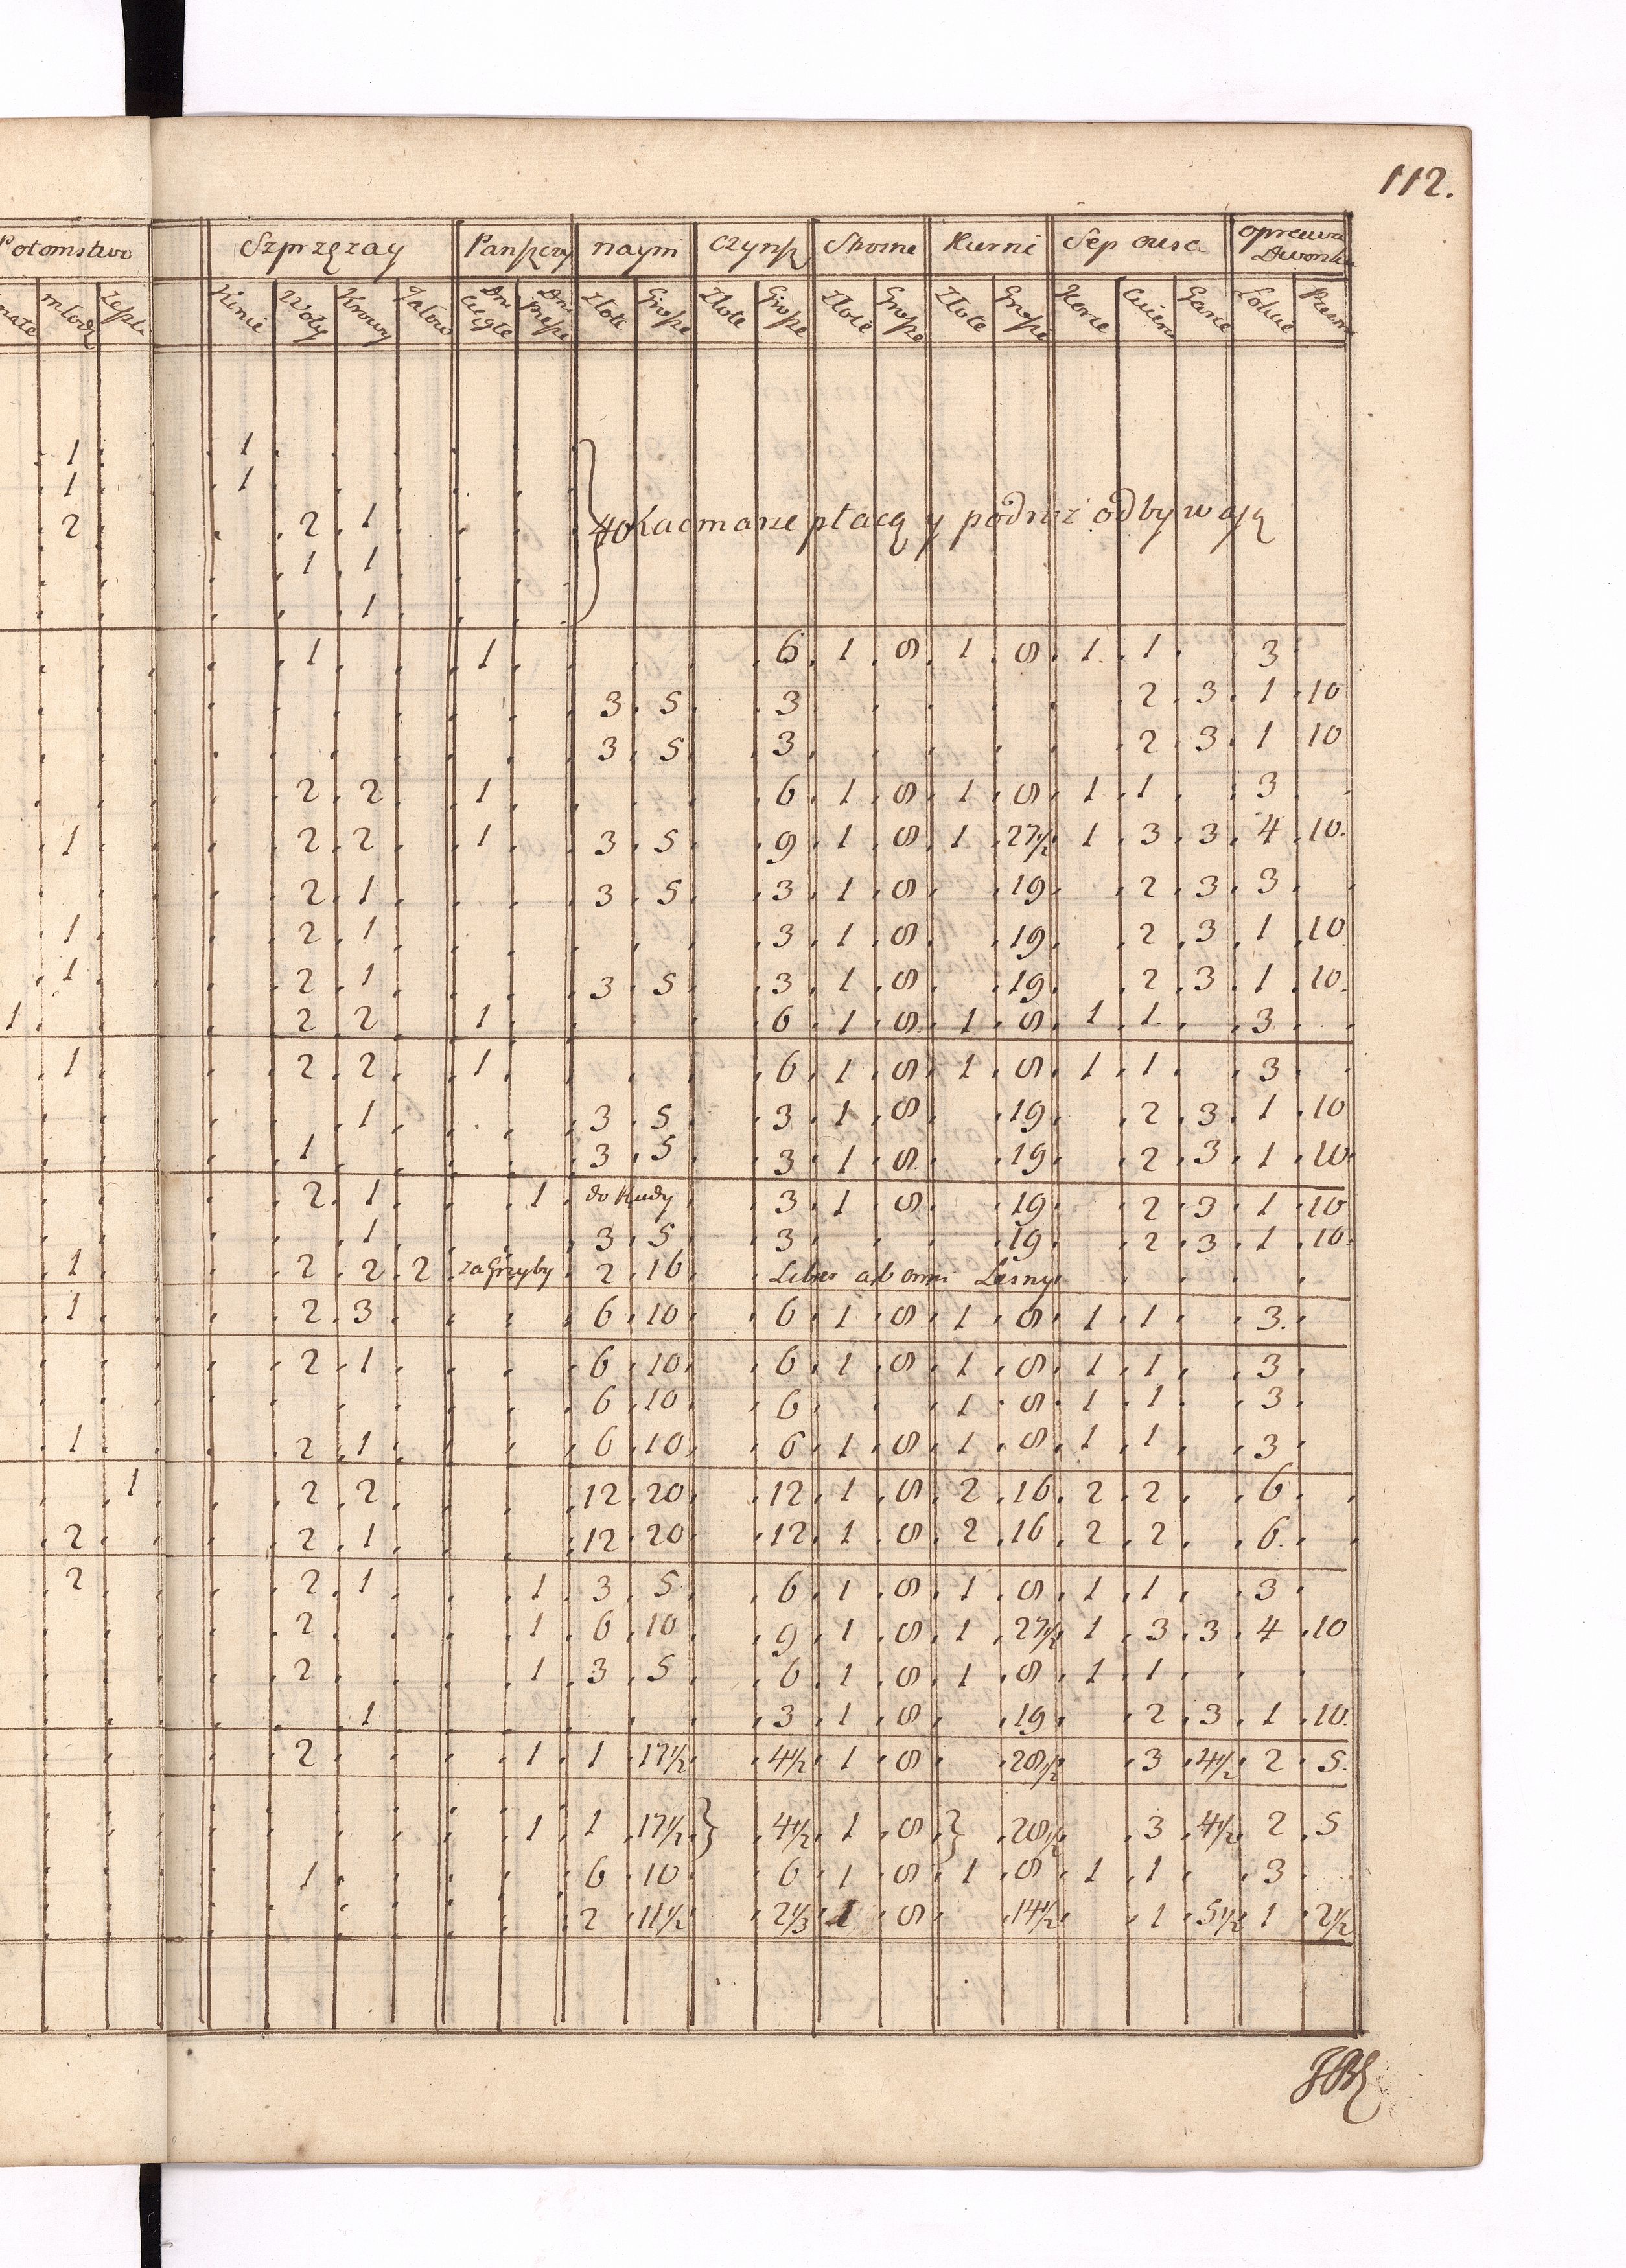 112.
Potomstwo Szprzęzay Panszczy naym czynsz Skorne Kurni Sep owsa oprawa Dworska
młodz Konie Woły Krowy Jałow Dni ciągłe Dni piesze Złote Grosze Złote Grosze Złote Grosze Złote Grosze Korce Cwierci Garce Łokcie
1 1
1 1
2 2 1 płacą y podroż odbywają
1 1
1
1 1 6 1 8 1 8 1 1 3
3 5 3 2 3 1 10
3 5 3 2 3 1 10
2 2 1 6 1 8 1 8 1 1 3
1 2 2 1 3 5 9 1 8 1 27½ 1 3 3 4 10
2 1 3 5 3 1 8 19 2 3 3
1 2 1 3 1 8 19 2 3 1 10
1 2 1 3 5 3 1 8 19 2 3 1 10
1 2 2 1 6 1 8 1 8 1 1 3
1 2 2 1 6 1 8 1 8 1 1 3
1 3 5 3 1 8 19 2 3 1 10
1 3 5 3 1 8 19 2 3 1 10
2 1 1 do Rudy 3 1 8 19 2 3 1 10
1 3 5 3 19 2 3 1 10
1 2 2 2 za Grzyby 2 16 Liber ab omni Leśny
1 2 3 6 10 6 1 8 1 8 1 1 3
2 1 6 10 6 1 8 1 8 1 1 3
6 10 6 1 8 1 1 3
1 2 1 6 10 6 1 8 1 8 1 1 3
1 2 2 12 20 12 1 8 2 16 2 2 6
2 2 1 12 20 12 1 8 2 16 2 2 6
2 2 1 1 3 5 6 1 8 1 8 1 1 3
2 1 6 10 9 1 8 1 27½ 1 3 3 4 10
2 1 3 5 6 1 8 1 8 1 1
1 3 1 8 19 2 3 1 10
2 1 1 17½ 4½ 1 8 28½ 3 4½ 2 5
1 1 17½ 4½ 1 8 28½ 3 4½ 2 5
1 6 10 6 1 8 1 8 1 1 3
2 11½ 2⅓ 1 8 14½ 1 5½ 1 2½